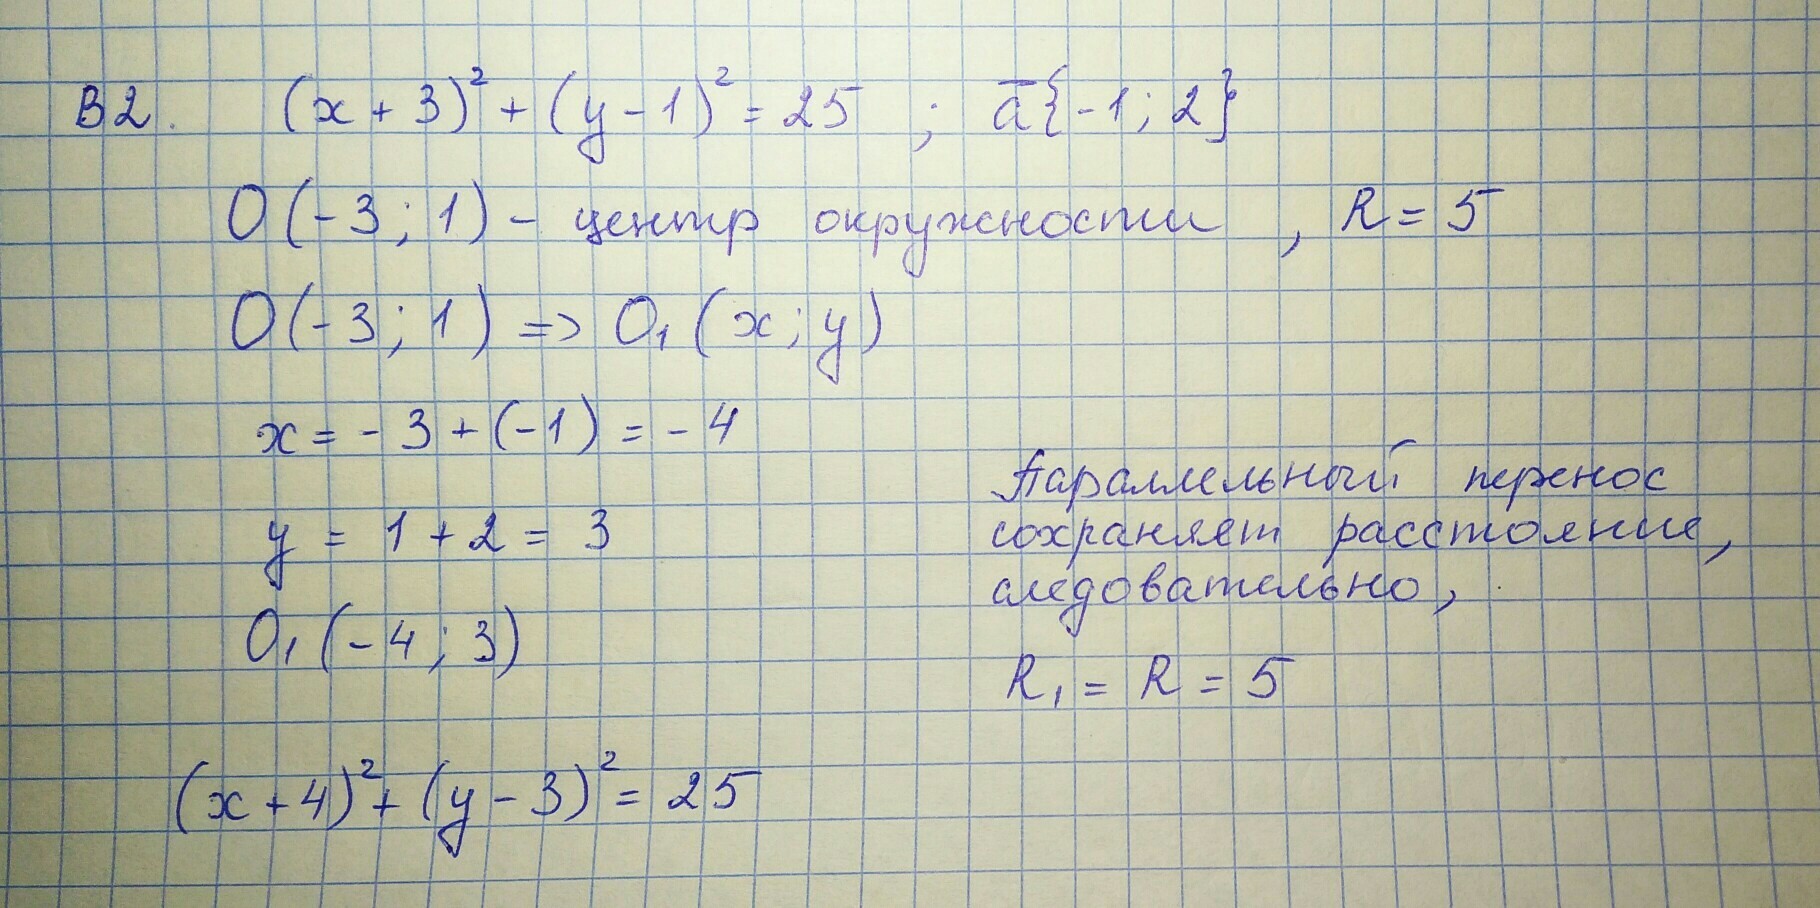 В2. (x + 3)² + (y - 1)² = 25 ; a̅{-1; 2}
O(-3; 1) - центр окружности, R = 5
O(-3; 1) => O₁(x; y)
x = -3 + (-1) = -4
y = 1 + 2 = 3
O₁(-4; 3)
Параллельный перенос
сохраняет расстояние,
следовательно,
R₁ = R = 5
(x + 4)² + (y - 3)² = 25